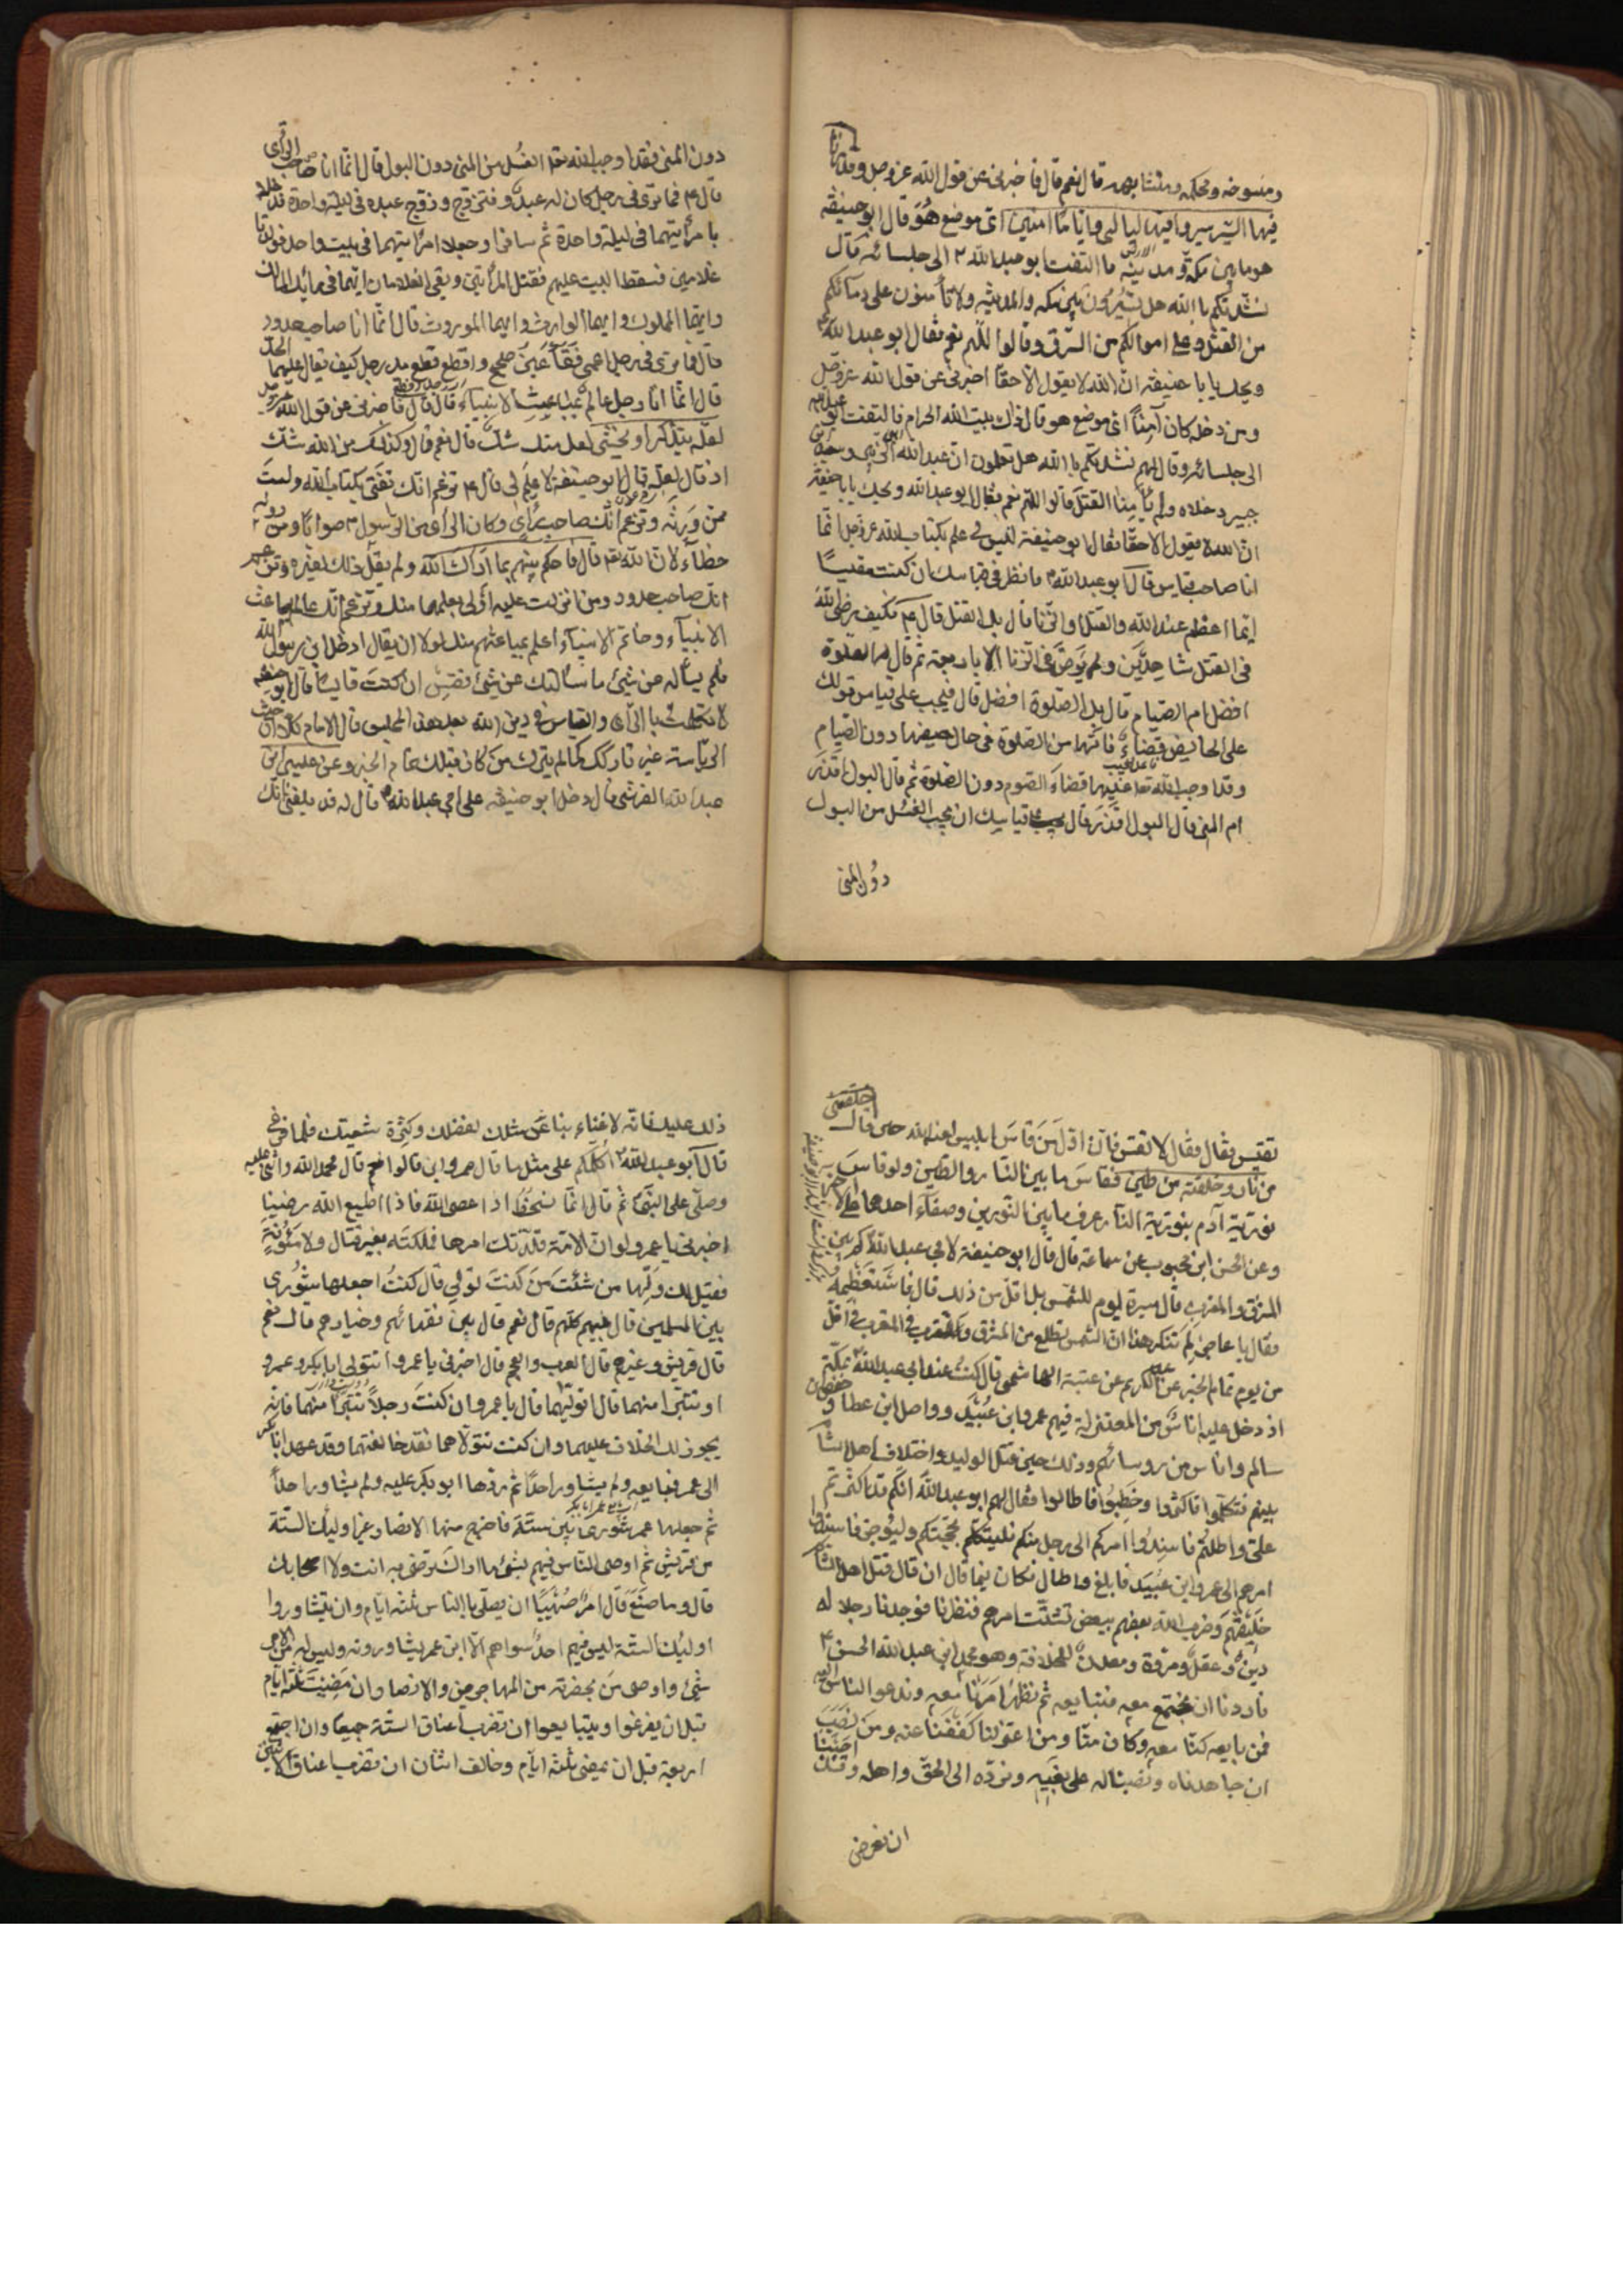 ومنسوخه ومحكمه ومتشابهه قال نعم قال فاخبرني عن قول الله عز وجل وقدرنا
فيها السير سيروا فيها ليالي واياما امنين اي موضع هو قال ابو حنيفة
هو ما بين مكة ومدينة فالتفت ابو عبد الله ع الى جلسائه فقال
نشدتكم بالله هل تسيرون بين مكه والمدينه ولا تأمنون على دمائكم
من القتل وعلى اموالكم من السرق وقالوا اللهم نعم فقال ابو عبد الله ع
ويحك يابا حنيفة ان الله لا يقول الا حقا اخبرني عن قول الله عز وجل
ومن دخله كان آمنا اي موضع هو قال ذلك بيت الله الحرام فالتفت ابو عبد الله
الى جلسائه وقال لهم نشدتكم بالله هل تعلمون ان عبد الله ابن الزبير وسعيد ابن
جبير دخلاه ولم يأمنا القتل قالوا اللهم نعم فقال ابو عبد الله ويحك يابا حنيفة
ان الله لا يقول الا حقا فقال ابو حنيفة ليس لي علم بكتاب الله عز وجل انما
انا صاحب قياس قال ابو عبد الله ع فانظر في قياسك ان كنت مقيسا
ايما اعظم عند الله القتل او الزنا قال بل القتل قال ع فكيف رضي الله
في القتل شاهدين ولم يرض في الزنا الا باربعة ثم قال له الصلوة
افضل ام الصيام قال بل الصلوة افضل قال فيجب على قياس قولك
على الحايض قضاء ما فاتها من الصلوة في حال حيضها دون الصيام
وقد اوجب الله تعا عليها قضاء الصوم دون الصلوة ثم قال البول اقذر
ام المني قال البول اقذر قال يجب على قياسك ان يجب الغسل من البول
دون المني
دون المني فقد اوجب الله تعا الغسل من المني دون البول قال انما انا صاحب راى
قال ع فما ترى في رجل كان له عبد فتزوج وزوج عبده في ليلة واحدة فدخلا
بامرأتيهما في ليلة واحدة ثم سافرا وجعلا امرأتيهما في بيت واحد فولدتا
غلامين فسقط البيت عليهم فقتل المرأتين وبقى الغلامان ايهما في رأيك المالك
وايهما المملوك وايهما الوارث وايهما الموروث قال انما انا صاحب حدود
قال فما ترى في رجل اعمى فقأ عين صحيح واقطع قطع يد رجل كيف يقام عليهما الحد
قال انما انا رجل عالم بمباعث الانبياء قال فاخبرني عن قول الله عز وجل
لعله يتذكر او يخشى لعل منك شك قال نعم قال وكذلك من الله شك
اذ قال لعله قال ابو حنيفة لا علم لي قال ع تزعم انك تفتى بكتاب الله ولست
ممن ورثه وتزعم انك صاحب رأى وكان الرأى من الرسول ص صوابا ومن دونه
خطاء لان الله تع قال فاحكم بينهم بما اراك الله ولم يقل ذلك لغيره وتزعم
انك صاحب حدود ومن انزلت عليه اولى بعلمها منك وتزعم انك عالم بمباعث
الانبياء وخاتم الانبياء اعلم بمباعثهم منك لولا ان يقال دخل على ابن رسول الله
فلم يسأله عن شيئ ما سألتك عن شيئ فقس ان كنت قايسا قال ابو حنيفة
لا تكلمت بالرأى والقياس في دين الله بعد هذا المجلس قال الامام كلا ان حب
الرياسة غير تاركك كما لم يترك من كان قبلك تمام الخبر وعن عيسى ابن
عبد الله القرشى قال دخل ابو حنيفة على ابي عبد الله ع فقال له قد بلغني انك
تقيس فقال فقال لا تقس فان اول من قاس ابليس لعنه الله حين قال خلقتنى
من نار وخلقته من طين فقاس ما بين النار والطين ولو قاس
نورية آدم بنورية النار عرف ما بين النورين وصفاء احدهما على الاخر
وعن الحسن ابن محبوب عن سماعة قال قال ابو حنيفة لابي عبد الله ع كم بين
المشرق والمغرب قال مسيرة يوم للشمس بل اقل من ذلك قال فاستعظمه
فقال يا عاجز لم تنكر هذا ان الشمس تطلع من المشرق وتغرب في المغرب في اقل
من يوم تمام الخبر عن عبد الكريم عن عتبة الهاشمى قال كنت عند ابي عبد الله ع بمكة
اذ دخل عليه اناس من المعتزلة فيهم عمرو ابن عبيد وواصل ابن عطا وحفص ابن
سالم واناس من رؤسائهم وذلك حين قتل الوليد واختلف اهل الشام
بينهم فتكلموا فاكثروا وخطبوا فاطالوا فقال لهم ابو عبد الله انكم قد اكثرتم
على واطلتم فاسندوا امركم الى رجل منكم فليتكلم بحجتكم وليوجز فاسندوا
امرهم الى عمرو ابن عبيد فابلغ واطال فكان فيما قال ان قال قتل اهل الشام
خليفتهم وضرب الله بعضهم ببعض وتشتت امرهم فنظرنا فوجدنا رجلا له
دين وعقل ومروة ومعدن للخلافة وهو محمد ابن عبد الله الحسن ع
فاردنا ان نجتمع معه فنبايعه ثم نظهر امرنا معه وندعو الناس اليه
فمن بايعه كنا معه وكان منا ومن اعتزلنا كففنا عنه ومن نصب
ان جاهدناه ونصبنا له على بغيه ونرده الى الحق واهله وقد احببنا
ان نعرض
ذلك عليك فانه لا غناء بنا عن مثلك لفضلك وكثرة شيعتك فلما فرغ
قال ابو عبد الله ع اكلكم على مثل ما قال عمرو ابن قالوا نعم قال فحمد الله واثنى عليه
وصلى على النبي ثم قال انما نسخط اذا عصى الله فاذا اطيع الله رضينا
اخبرنى يا عمرو لو ان الامة قلدتك امرها فملكته بغير قتال ولا مؤنة
فقيل لك ولها من شئت من كنت تولي قال كنت اجعلها شورى
بين المسلمين قال بينهم كلهم قال نعم قال بين فقهائهم وخيارهم قال نعم
قال قريش وغيرهم قال العرب والعجم قال اخبرنى يا عمرو اتتولى ابا بكر وعمر و
او تتبرأ منهما قال اتولهما قال يا عمرو ان كنت رجلا تتبرأ منهما فانه
يجوز لك الخلاف عليهما وان كنت تتولاهما فقد خالفتهما وقد عهد ابا بكر
الى عمر فبايعه ولم يشاور احدا ثم ردها ابو بكر عليه ولم يشاور احدا
ثم جعلها عمر شورى بين ستة فاخرج منها الانصار غير اولئك الستة
من قريش ثم اوصى الناس فيهم بشئ ما اراك ترضى به انت ولا اصحابك
قال وما صنع قال امر صهيبا ان يصلى بالناس ثلثه ايام وان يتشاوروا
اولئك الستة ليس فيهم احد سواهم الا ابن عمر يشاورونه وليس له من الامر
شيئ واوصى من بحضرته من المهاجرين والانصار ان مضيت ثلثة ايام
قبل ان يفرغوا ويبايعوا ان تضرب اعناق الستة جميعا وان اجتمع
اربعة قبل ان يمضى ثلثه ايام وخالف اثنان ان تضرب اعناق الاثنين